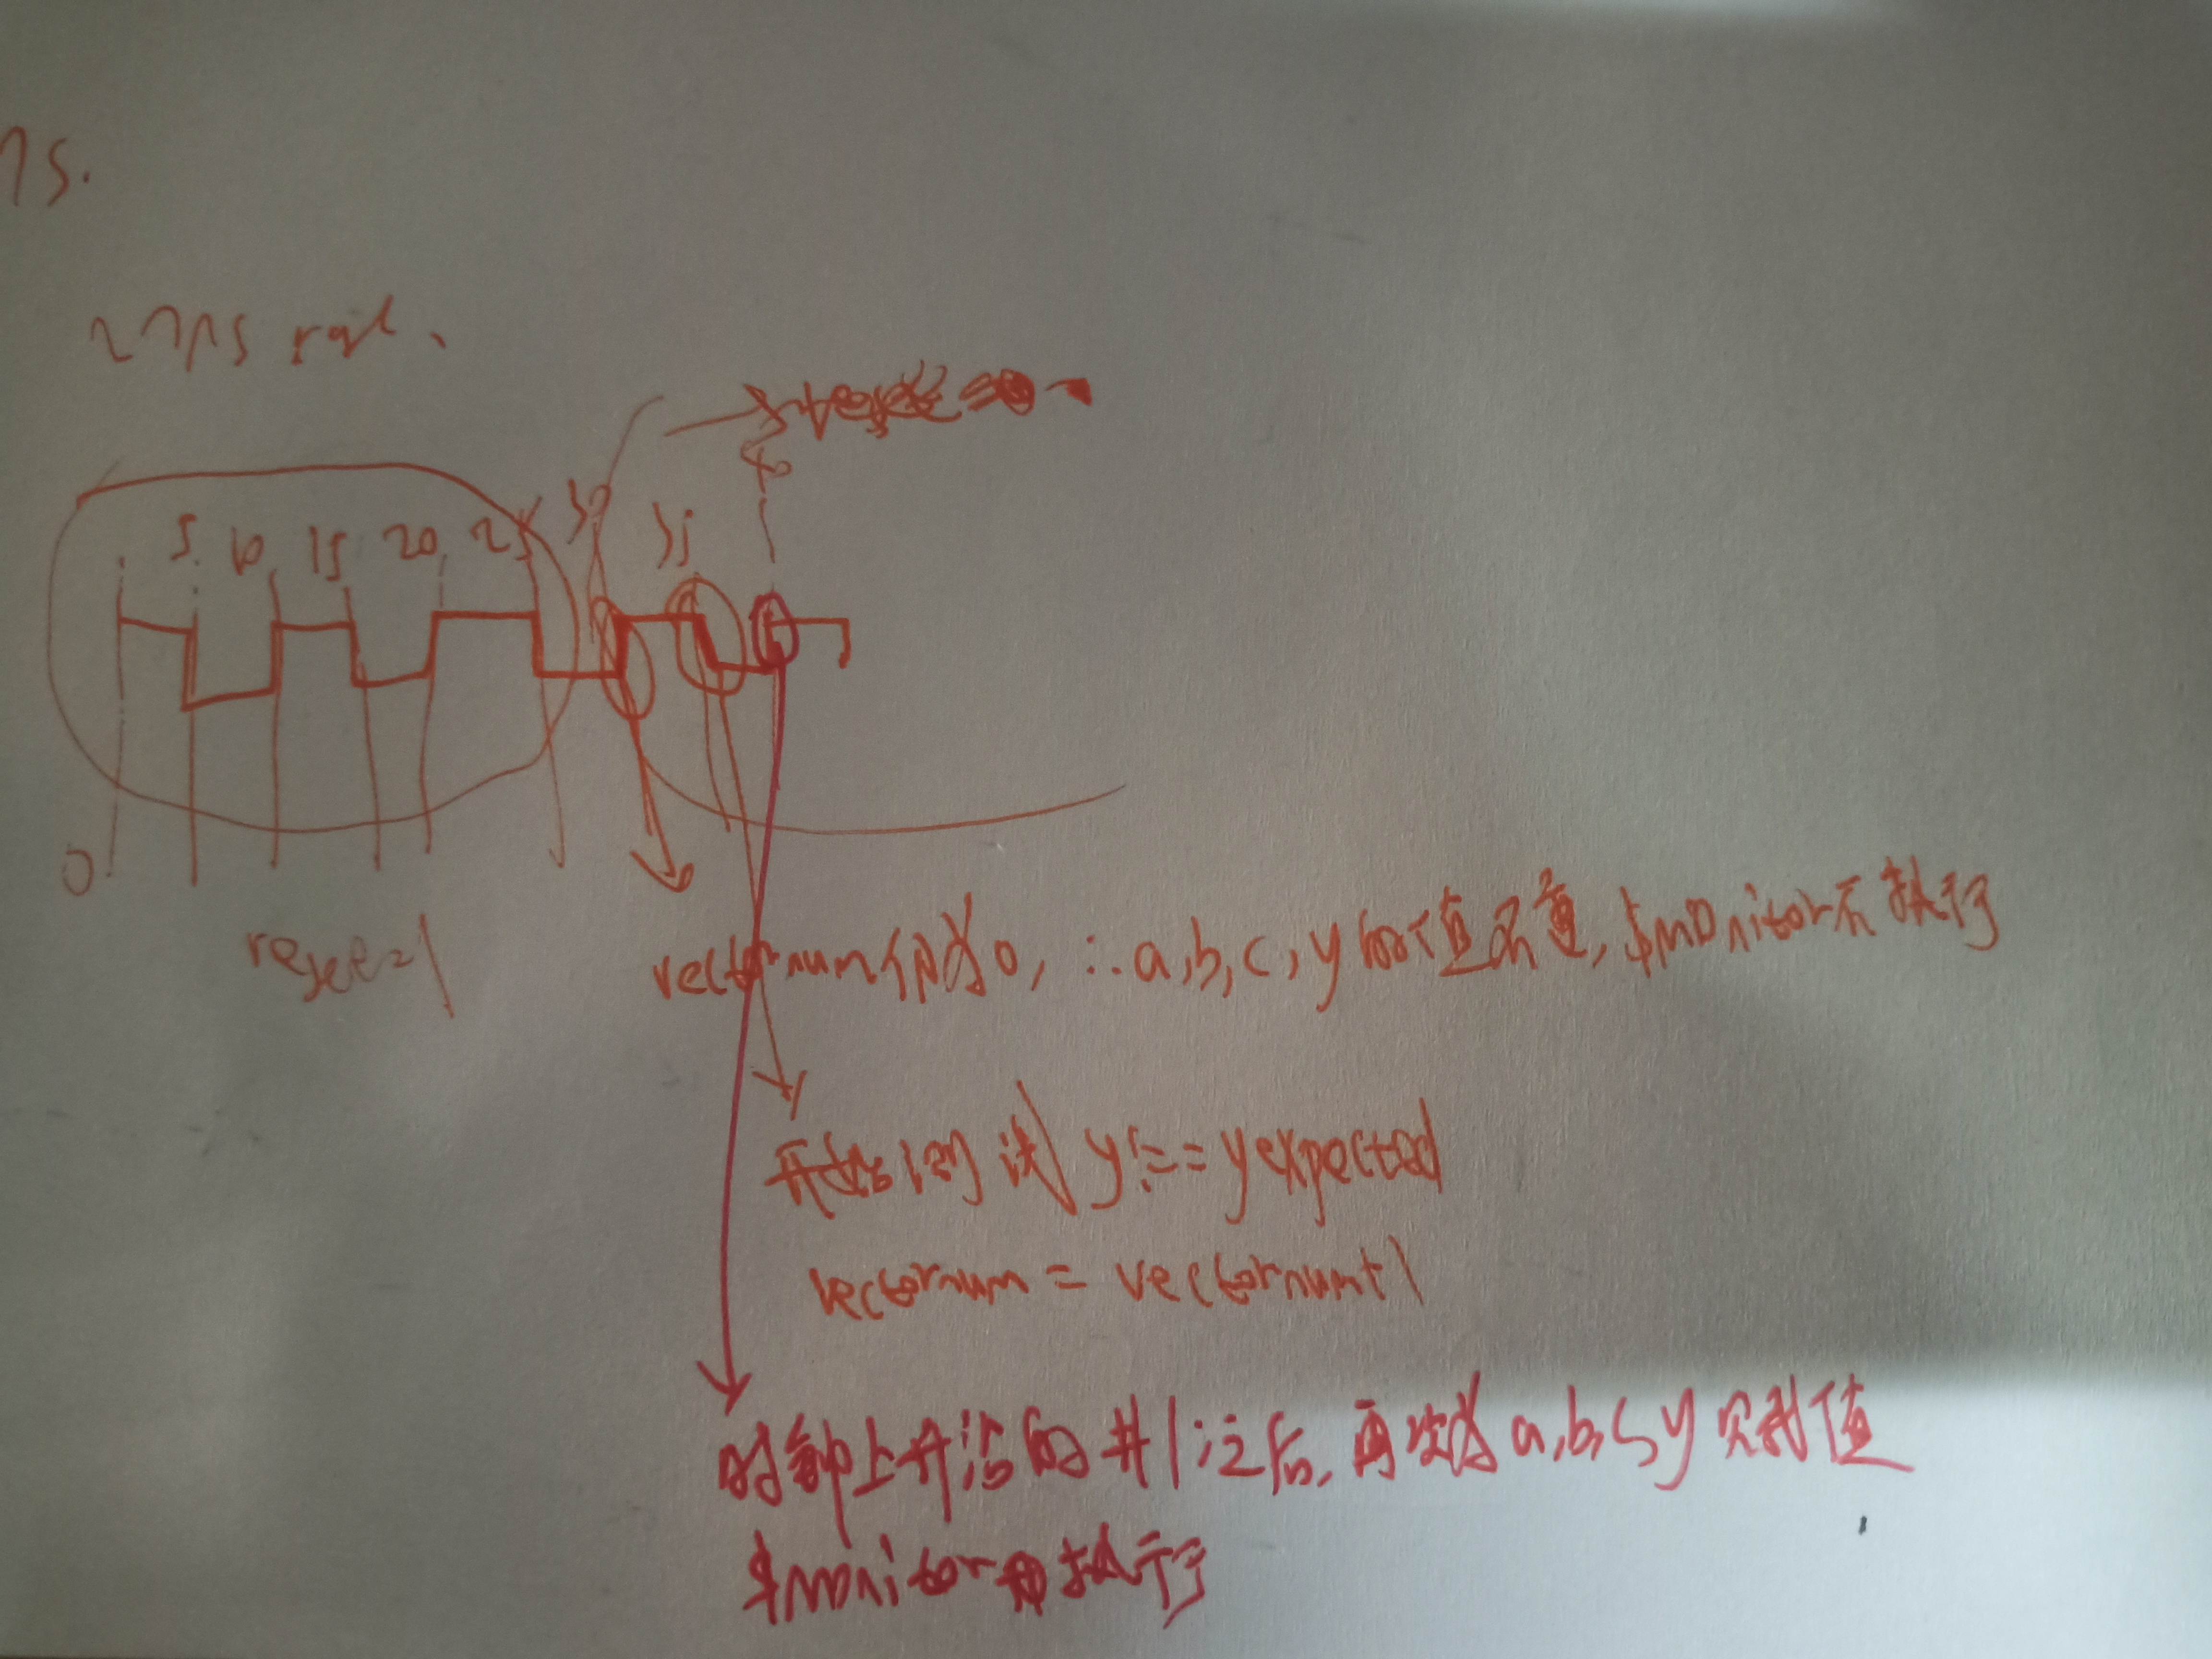 ns.
27ns
40
5 10 15 20 25 30 35
0
reset=1
vectornum仍为0, ∴a,b,c,y的值不变,$monitor不执行
开始测试 y!==yexpected
vectornum = vectornum+1
时钟上升沿的#1之后,再次为a,b,c,y赋值
$monitor 执行